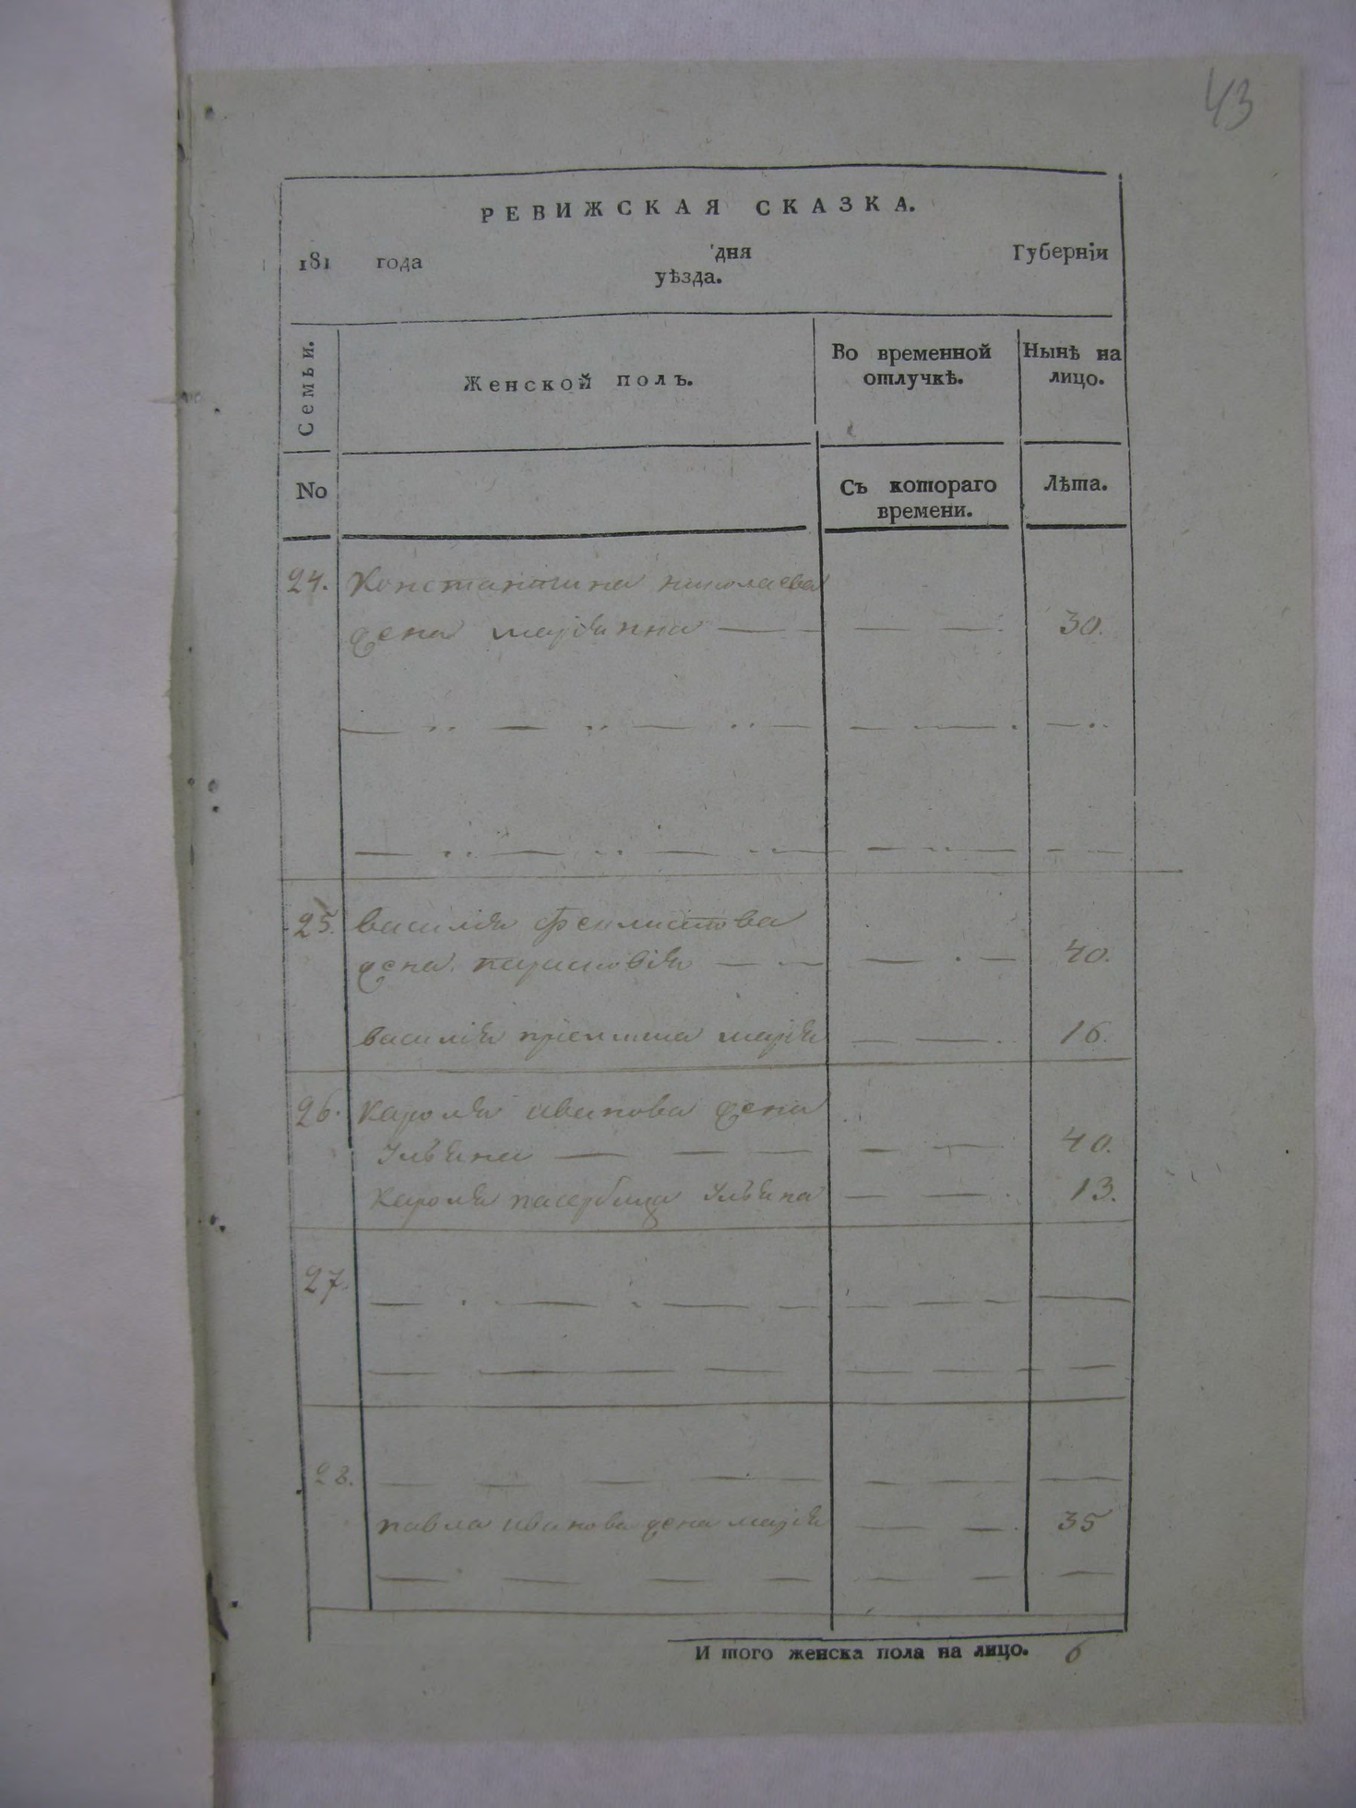 43
РЕВИЖСКАЯ СКАЗКА.
181 года дня Губернїи
уѣзда.
Семьи. Женской полъ. Во временной отлучкѣ. Нынѣ на лицо.
No Съ котораго времени. Лѣта.
24. Константина николаева
жена марїянна — — — 30.
25. василїя феклистова
жена парасковїя — — — 40.
василїя прїемша марїя — — 16.
26. Каролїя иванова жена
Ульяна — — — — — 40.
Каролїя пасербица Ульяна — — 13.
27.
28.
павла иванова жена марїя — — 35
И того женска пола на лицо. 6